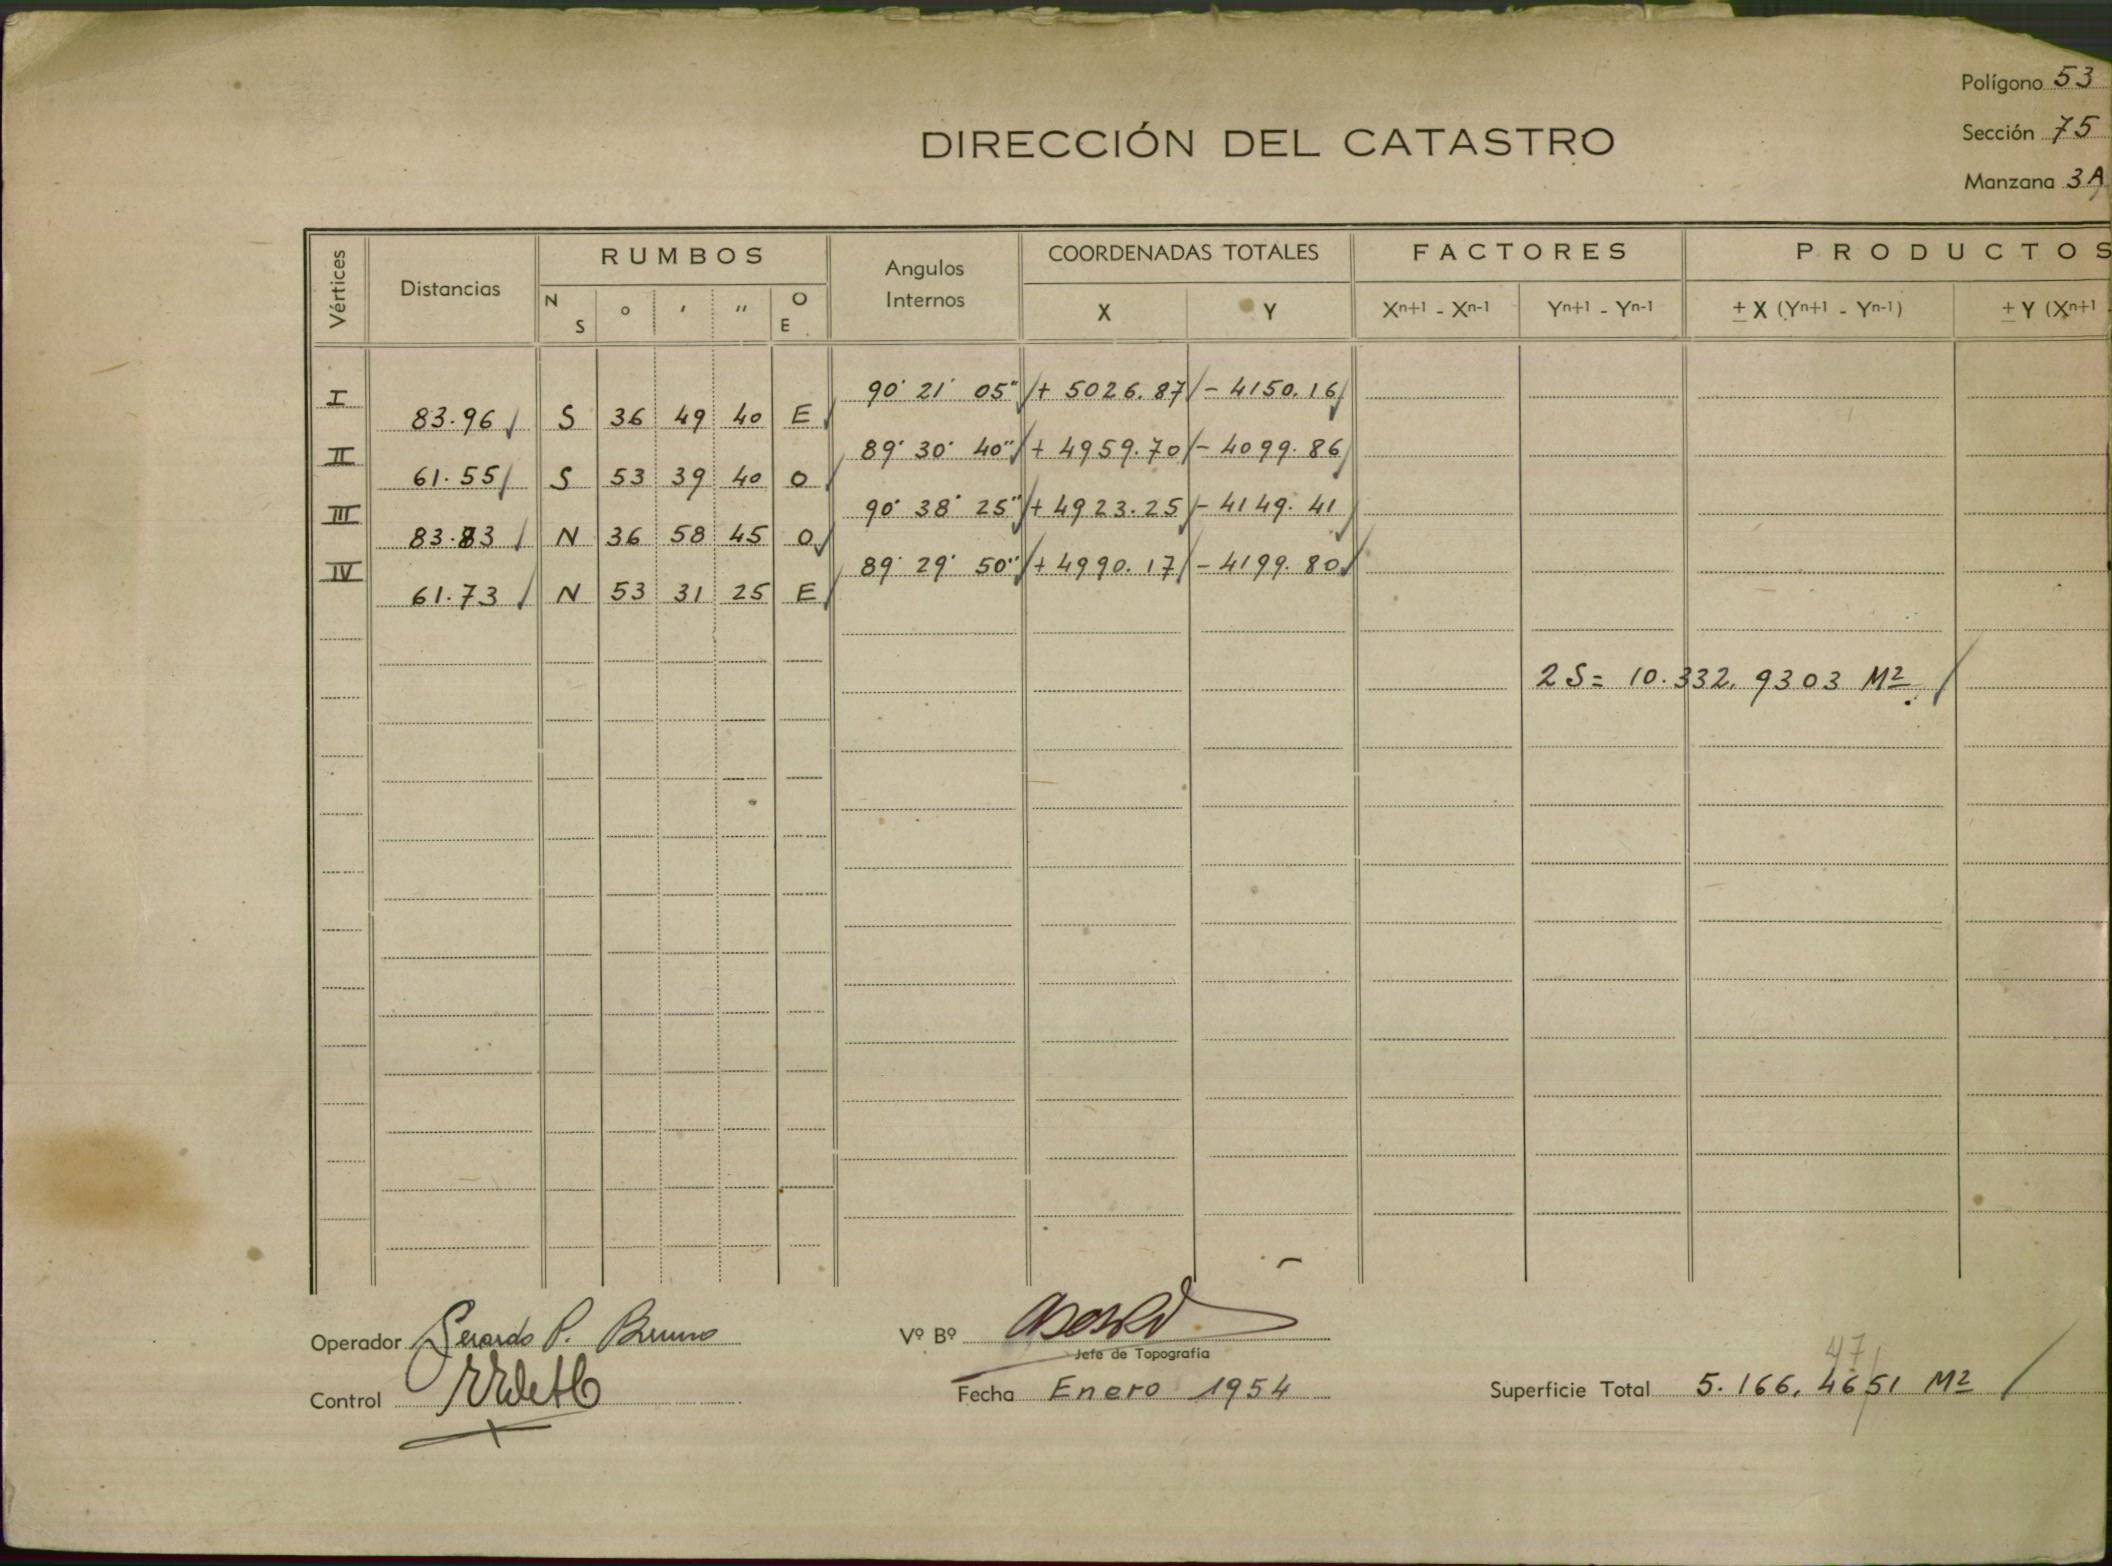 Polígono 53
DIRECCIÓN DEL CATASTRO
Sección 75
Manzana 3A
Vértices Distancias RUMBOS Angulos Internos COORDENADAS TOTALES FACTORES PRODUCTOS
N S ° ' '' O E X Y Xⁿ⁺¹ - Xⁿ⁻¹ Yⁿ⁺¹ - Yⁿ⁻¹ ± X (Yⁿ⁺¹ - Yⁿ⁻¹) ± Y (Xⁿ⁺¹
I 90° 21' 05" + 5026.87 - 4150.16
83.96 S 36 49 40 E
II 89° 30' 40" + 4959.70 - 4099.86
61.55 S 53 39 40 O
III 90° 38' 25" + 4923.25 - 4149.41
83.83 N 36 58 45 O
IV 89° 29' 50" + 4990.17 - 4199.80
61.73 N 53 31 25 E
2 S = 10.332, 9303 M²
Operador Gerardo P. Bruno
Vº Bº
Jefe de Topografía
47
Control
Fecha Enero 1954
Superficie Total 5.166, 4651 M²